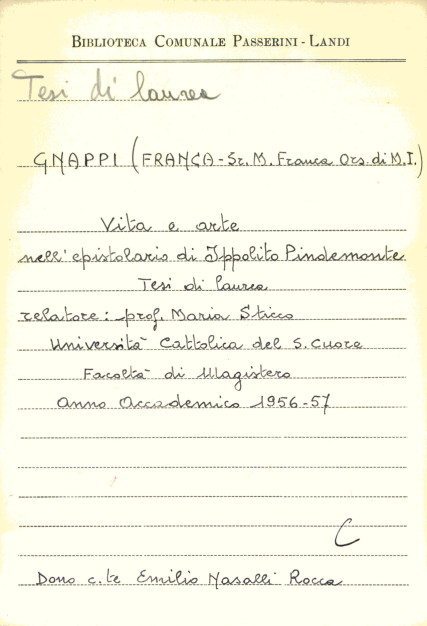 BIBLIOTECA COMUNALE PASSERINI - LANDI
Tesi di laurea
GNAPPI (FRANCA - Sr. M. Franca Ors. di M.I.)
Vita e arte
nell'epistolario di Ippolito Pindemonte
Tesi di laurea
relatore: prof. Maria Sticco
Università Cattolica del S. Cuore
Facoltà di Magistero
Anno Accademico 1956-57
C
Dono c.te Emilio Nasalli Rocca